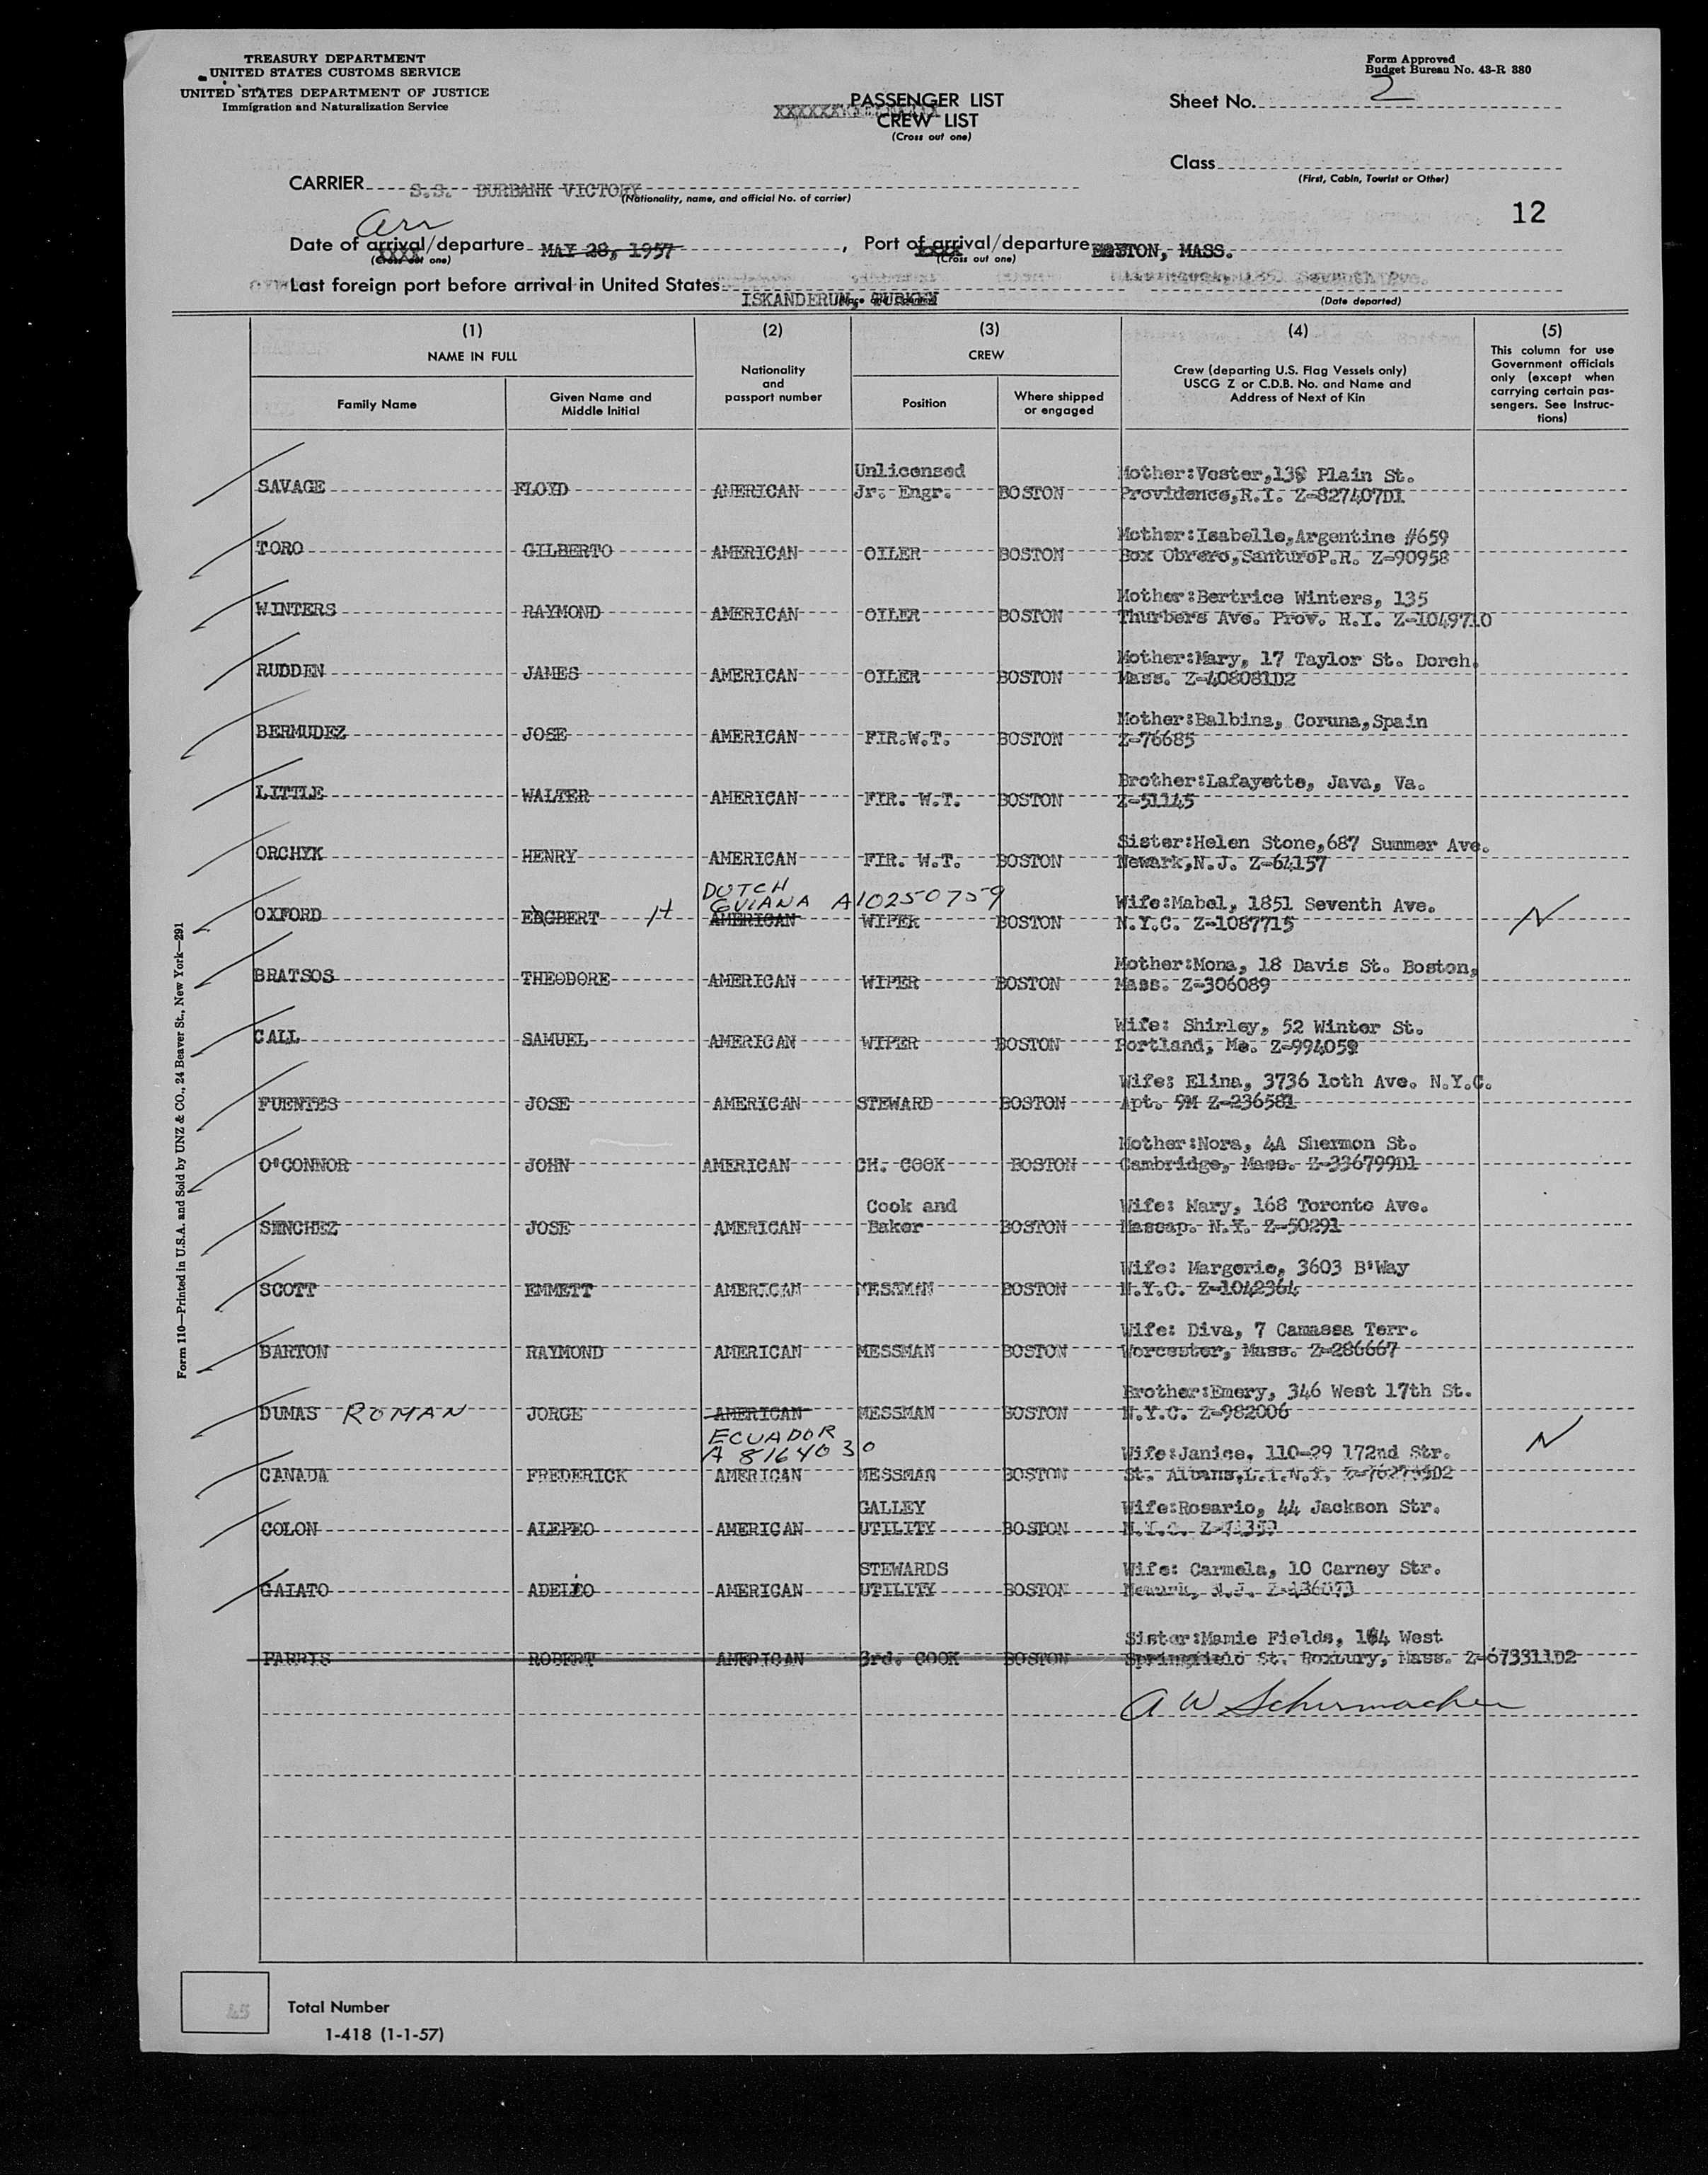 TREASURY DEPARTMENT
UNITED STATES CUSTOMS SERVICE
UNITED STATES DEPARTMENT OF JUSTICE
Immigration and Naturalization Service
Form Approved
Budget Bureau No. 43-R 380
PASSENGER LIST
CREW LIST
(Cross out one)
Sheet No. 2
Class
(First, Cabin, Tourist or Other)
CARRIER S.S. BURBANK VICTORY
(Nationality, name, and official No. of carrier)
12
Arr
Date of arrival/departure MAY 28, 1957, Port of arrival/departure BOSTON, MASS.
(Cross out one) (Cross out one)
Last foreign port before arrival in United States ISKANDERUN, TURKEY
(Date departed)
(1) (2) (3) (4) (5)
NAME IN FULL
Family Name
Given Name and Middle Initial
Nationality and passport number
CREW
Position
Where shipped or engaged
Crew (departing U.S. Flag Vessels only)
USCG Z or C.D.B. No. and Name and
Address of Next of Kin
This column for use
Government officials
only (except when
carrying certain pas-
sengers. See Instruc-
tions)
Unlicensed Mother:Vester,139 Plain St.
SAVAGE FLOYD AMERICAN Jr. Engr. BOSTON Providence,R.I. Z-827407D1
Mother:Isabelle,Argentine #659
TORO GILBERTO AMERICAN OILER BOSTON Box Obrero,SanturoP.R. Z-90958
Mother:Bertrice Winters, 135
WINTERS RAYMOND AMERICAN OILER BOSTON Thurbers Ave. Prov. R.I. Z-1049710
Mother:Mary, 17 Taylor St. Dorch.
RUDDEN JAMES AMERICAN OILER BOSTON Mass. Z-408081D2
Mother:Balbina, Coruna,Spain
BERMUDEZ JOSE AMERICAN FIR.W.T. BOSTON Z-76685
Brother:Lafayette, Java, Va.
LITTLE WALTER AMERICAN FIR. W.T. BOSTON Z-51145
Sister:Helen Stone,687 Summer Ave.
ORCHYK HENRY AMERICAN FIR. W.T. BOSTON Newark,N.J. Z-64157
DUTCH
GUIANA A10250759 Wife:Mabel, 1851 Seventh Ave.
OXFORD EDGBERT H AMERICAN WIPER BOSTON N.Y.C. Z-1087715 N
Mother:Mona, 18 Davis St. Boston,
BRATSOS THEODORE AMERICAN WIPER BOSTON Mass. Z-306089
Wife: Shirley, 52 Winter St.
CALL SAMUEL AMERICAN WIPER BOSTON Portland, Me. Z-994059
Wife: Elina, 3736 loth Ave. N.Y.C.
FUENTES JOSE AMERICAN STEWARD BOSTON Apt. 9M Z-236581
Mother:Nora, 4A Shermon St.
O'CONNOR JOHN AMERICAN CH. COOK BOSTON Cambridge, Mass. Z-336799D1
Cook and Wife: Mary, 168 Toronto Ave.
SENCHEZ JOSE AMERICAN Baker BOSTON Massap. N.Y. Z-50291
Wife: Margerie, 3603 B'Way
SCOTT EMMETT AMERICAN MESSMAN BOSTON N.Y.C. Z-1042364
Wife: Diva, 7 Camassa Terr.
BARTON RAYMOND AMERICAN MESSMAN BOSTON Worcester, Mass. Z-286667
Brother:Emery, 346 West 17th St.
DUMAS ROMAN JORGE AMERICAN MESSMAN BOSTON N.Y.C. Z-982006
ECUADOR N
A 8164030 Wife:Janice, 110-29 172nd Str.
CANADA FREDERICK AMERICAN MESSMAN BOSTON St. Albans,L.I.N.Y.
GALLEY Wife:Rosario, 44 Jackson Str.
COLON ALEPEO AMERICAN UTILITY BOSTON N.Y.C.
STEWARDS Wife: Carmela, 10 Carney Str.
GAIATO ADELIO AMERICAN UTILITY BOSTON Newark, N.J.
Sister:Mamie Fields, 164 West
PARRIS ROBERT AMERICAN 3rd. COOK BOSTON Springfield St. Roxbury, Mass. Z-673311D2
A W Schirmacher
Form 110—Printed in U.S.A. and Sold by UNZ & CO., 24 Beaver St., New York—291
45
Total Number
1-418 (1-1-57)